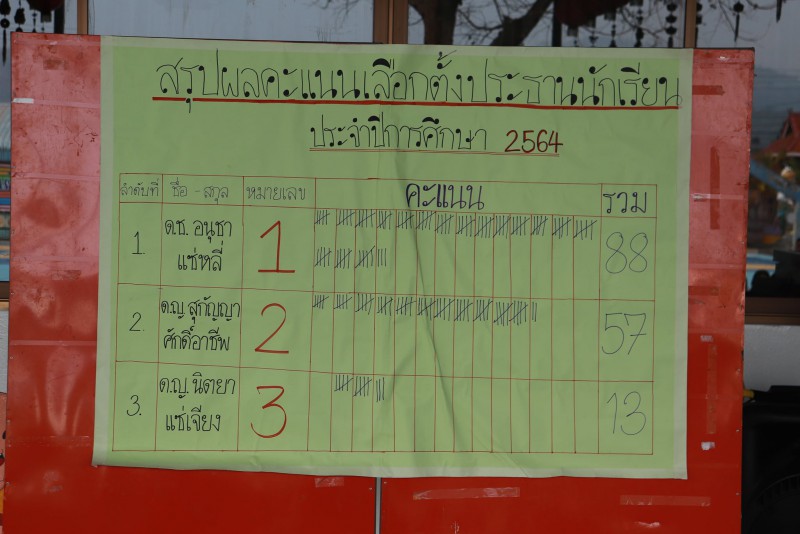 สรุปผลคะแนนเลือกตั้งประธานนักเรียน
ประจำปีการศึกษา 2564
ลำดับที่ ชื่อ - สกุล หมายเลข คะแนน รวม
1 ด.ช. อนุชา แซ่หลี่ 1 88
2. ด.ญ. สุกัญญา ศักดิ์อาชีพ 2 57
3. ด.ญ. นิตยา แซ่เจียง 3 13